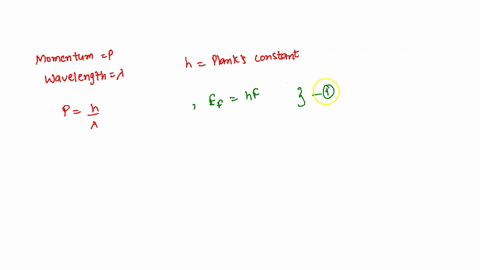 Momentum = P
Wavelength = λ
h = Plank's constant
P = h/λ
, Ef = hf } - ①